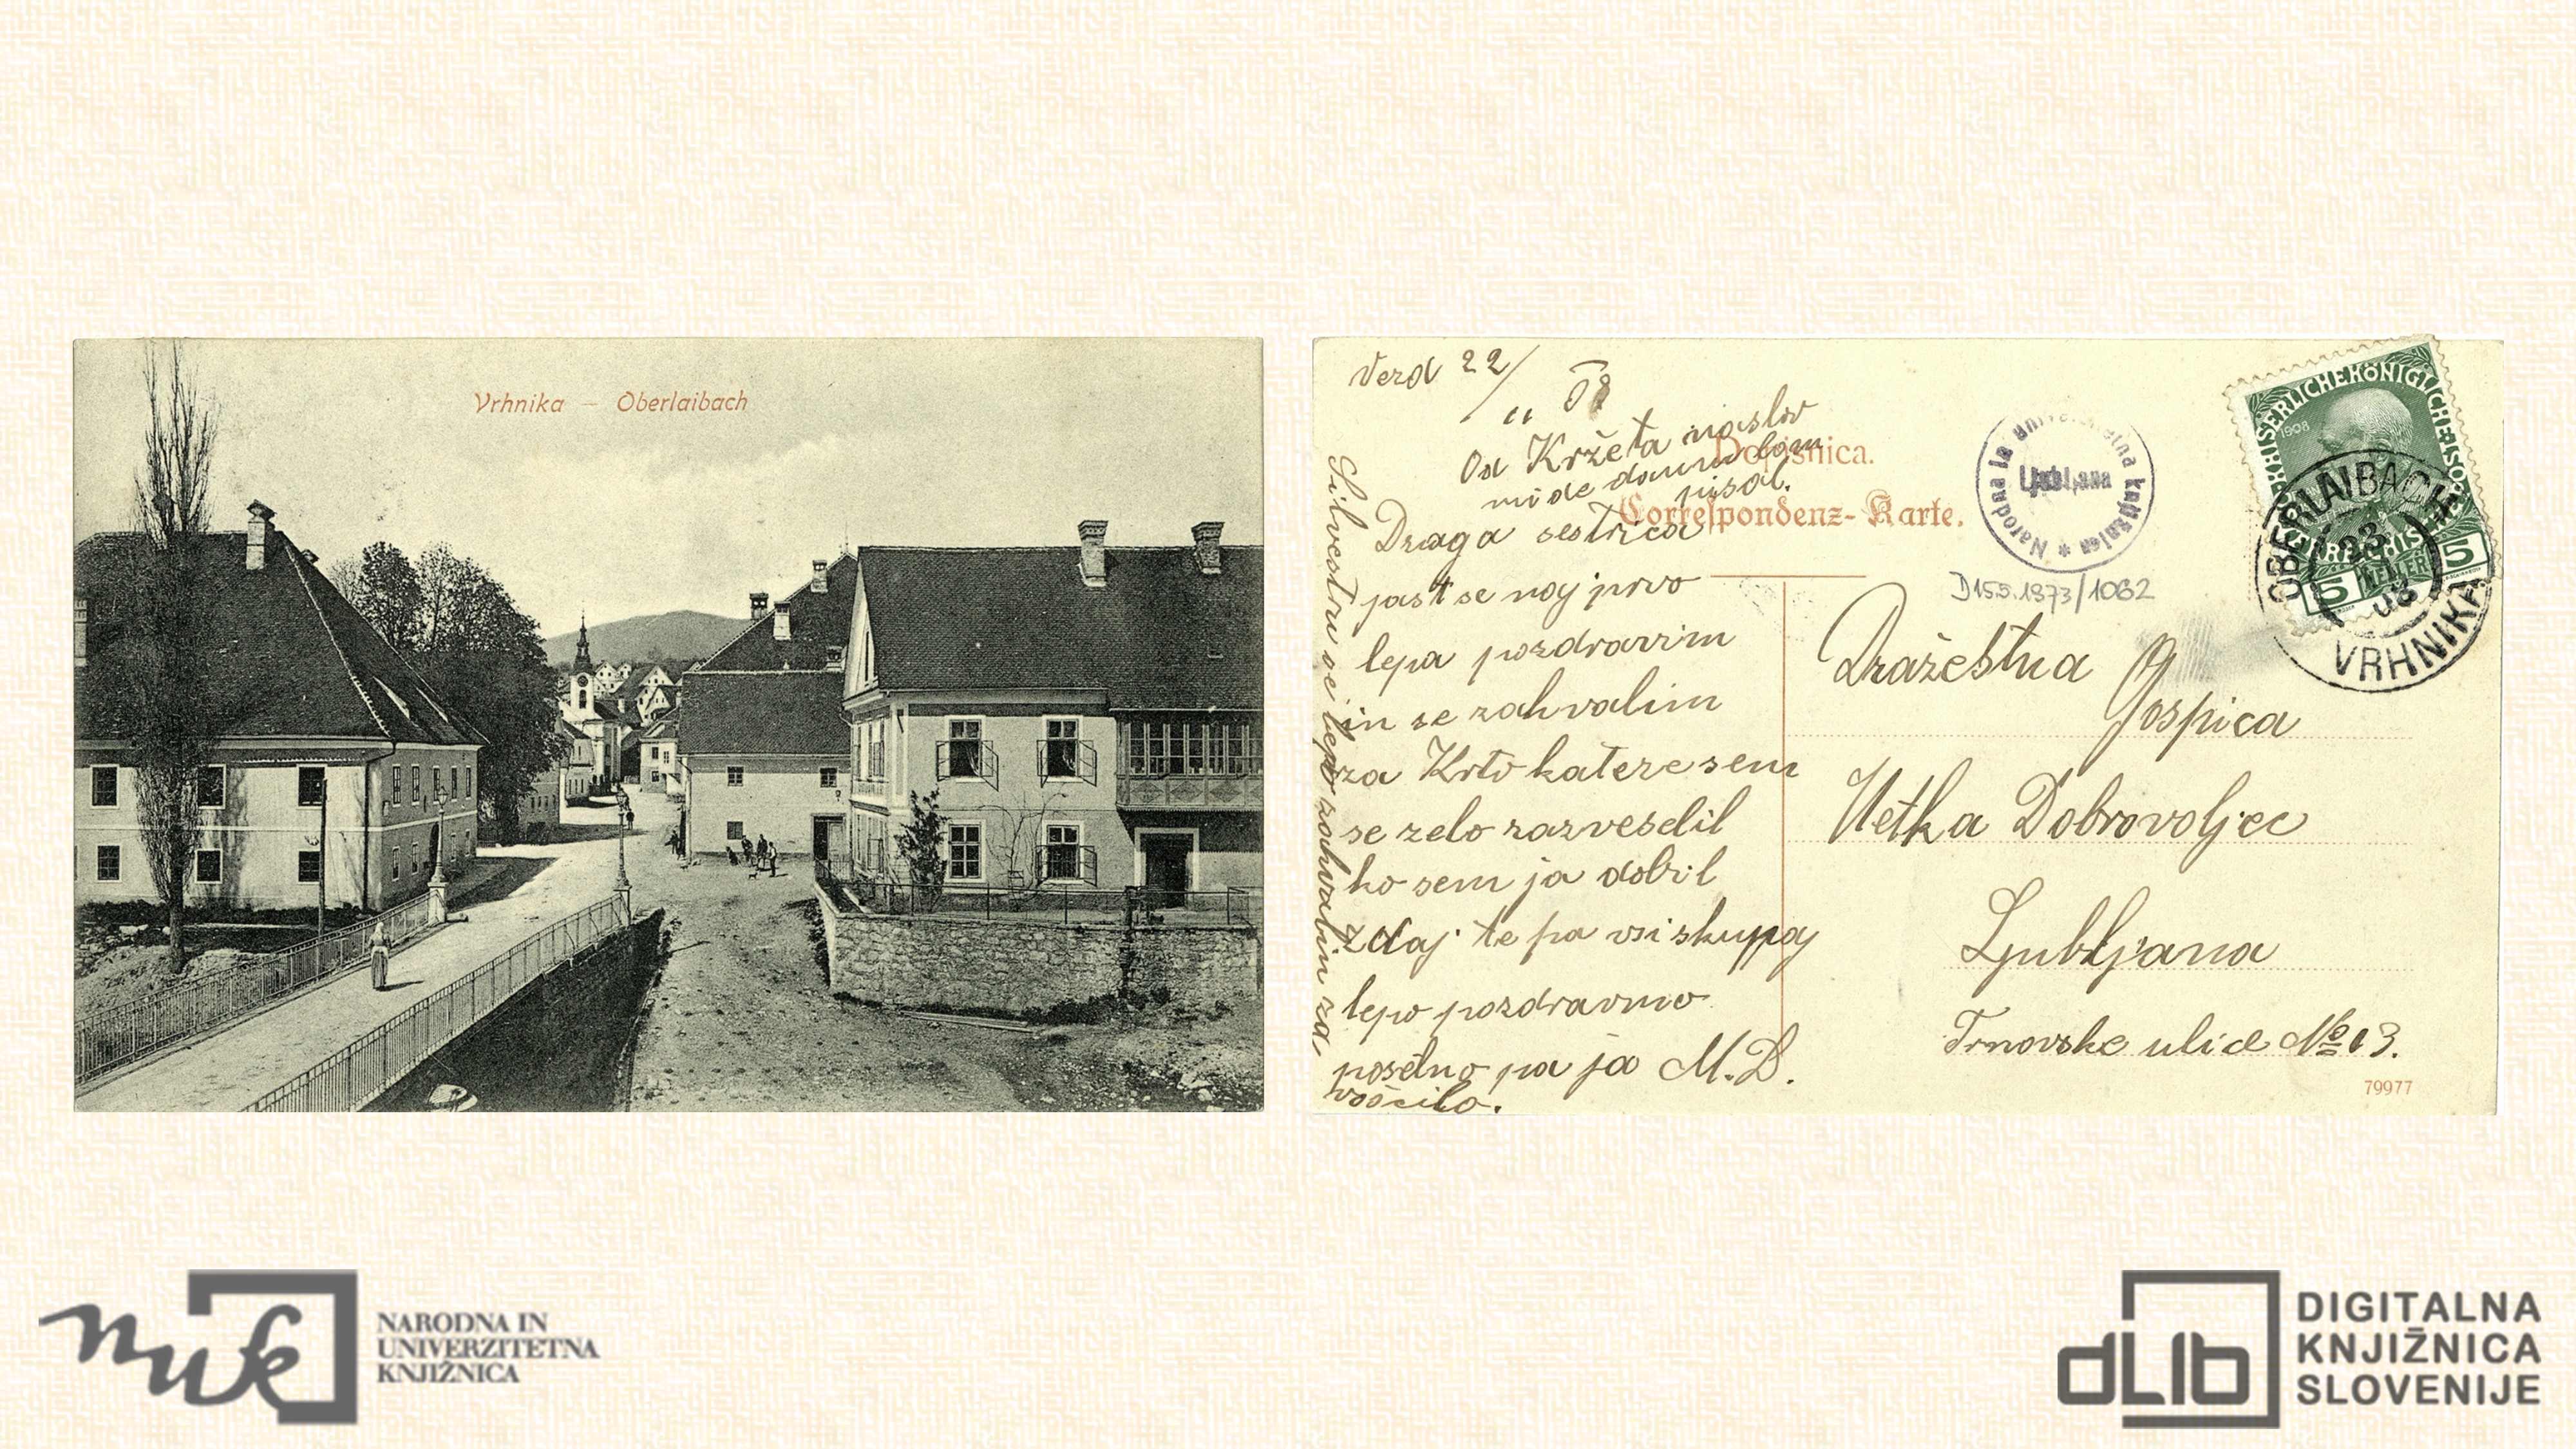 Vrhnika – Oberlaibach
Verd 22/
11 08
Od Kržeta naslov
pisal.
Dopisnica.
Correspondenz-Karte.
Draga sestrica
jast se naj prvo
lepa pozdravim
in se zahvalim
za Krto katere sem
se zelo razveselil
ko sem ja dobil
zdaj te pa vsi skupaj
lepo pozdravmo
posebno pa ja M. D.
Silvestru se lepo zahvalim za
voščilo.
Narodna in univerzitetna knjižnica *
Ljubljana
D 15.5.1973/1062
KAISERLICHE KÖNIGLICHE ÖSTERREICHISCHE
1908
5 HELLER 5
OBERLAIBACH
23
08
VRHNIKA
Dražestna G
Gospica
Uetka Dobrovoljec
Ljubljana
Trnovske ulice № 13.
79977
nuk
NARODNA IN
UNIVERZITETNA
KNJIŽNICA
dLib
DIGITALNA
KNJIŽNICA
SLOVENIJE